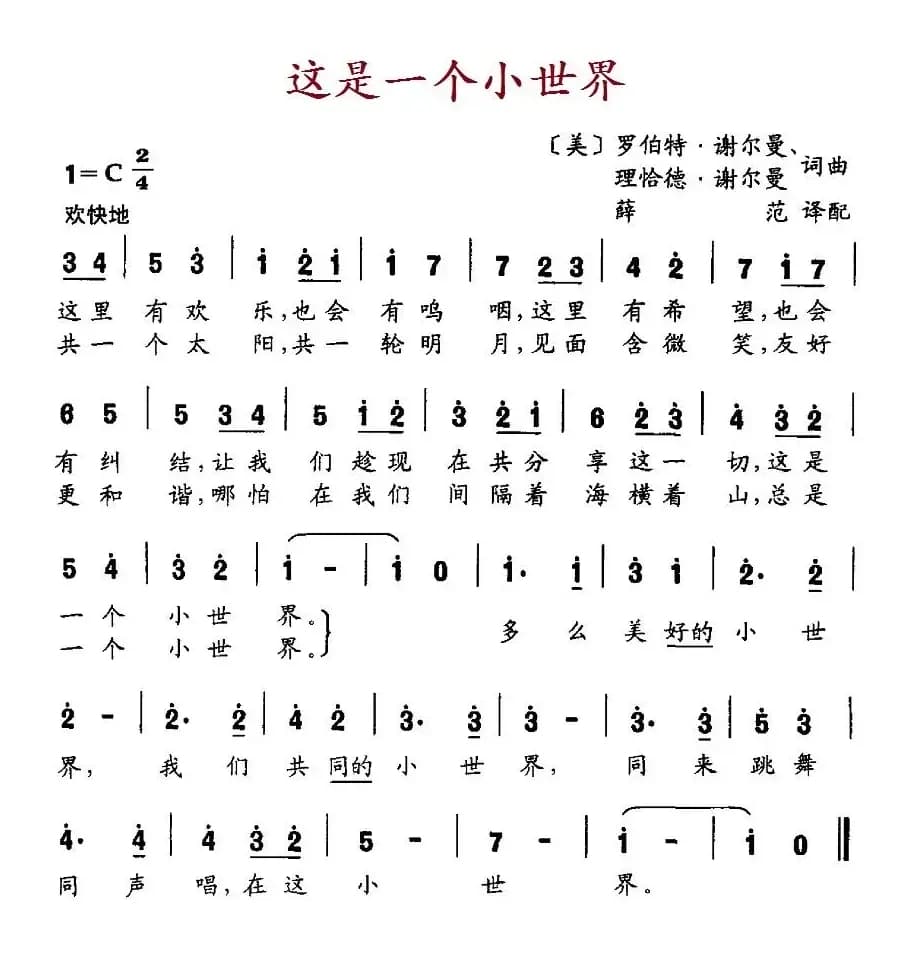 这是一个小世界
〔美〕罗伯特·谢尔曼、
理恰德·谢尔曼 词曲
薛 范 译配
1=C 2/4
欢快地
3 4 | 5 3̇ | 1̇ 2̇ 1̇ | 1̇ 7 | 7 2 3 | 4 2̇ | 7 1̇ 7 |
这里 有欢 乐,也会 有呜 咽,这里 有希 望,也会
共一 个太 阳,共一 轮明 月,见面 含微 笑,友好
6 5 | 5 3 4 | 5 1̇ 2̇ | 3̇ 2̇ 1̇ | 6 2̇ 3̇ | 4̇ 3̇ 2̇ |
有纠 结,让我 们趁现 在共分 享这一 切,这是
更和 谐,哪怕 在我们 间隔着 海横着 山,总是
5 4̇ | 3̇ 2̇ | 1̇ - | 1̇ 0 | 1̇· 1̇ | 3̇ 1̇ | 2̇· 2̇ |
一个 小世 界。
一个 小世 界。
多么美好的小世
2̇ - | 2̇· 2̇ | 4̇ 2̇ | 3̇· 3̇ | 3̇ - | 3̇· 3̇ | 5̇ 3̇ |
界, 我们共同的小世界, 同来跳舞
4̇· 4̇ | 4̇ 3̇ 2̇ | 5 - | 7 - | 1̇ - | 1̇ 0 ‖
同声唱,在这小世界。